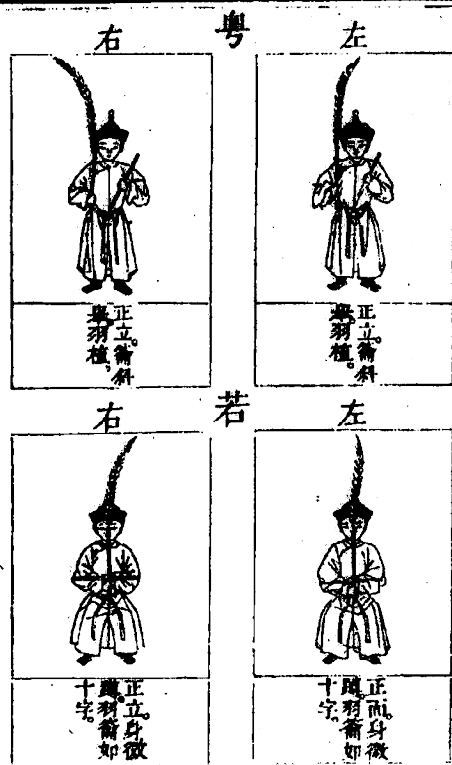 粵
左
正立。籥斜
舉羽植。
右
正立。籥斜
舉羽植。
若
左
正面。身微
蹲。羽籥如
十字。
右
正立。身微
蹲。羽籥如
十字。